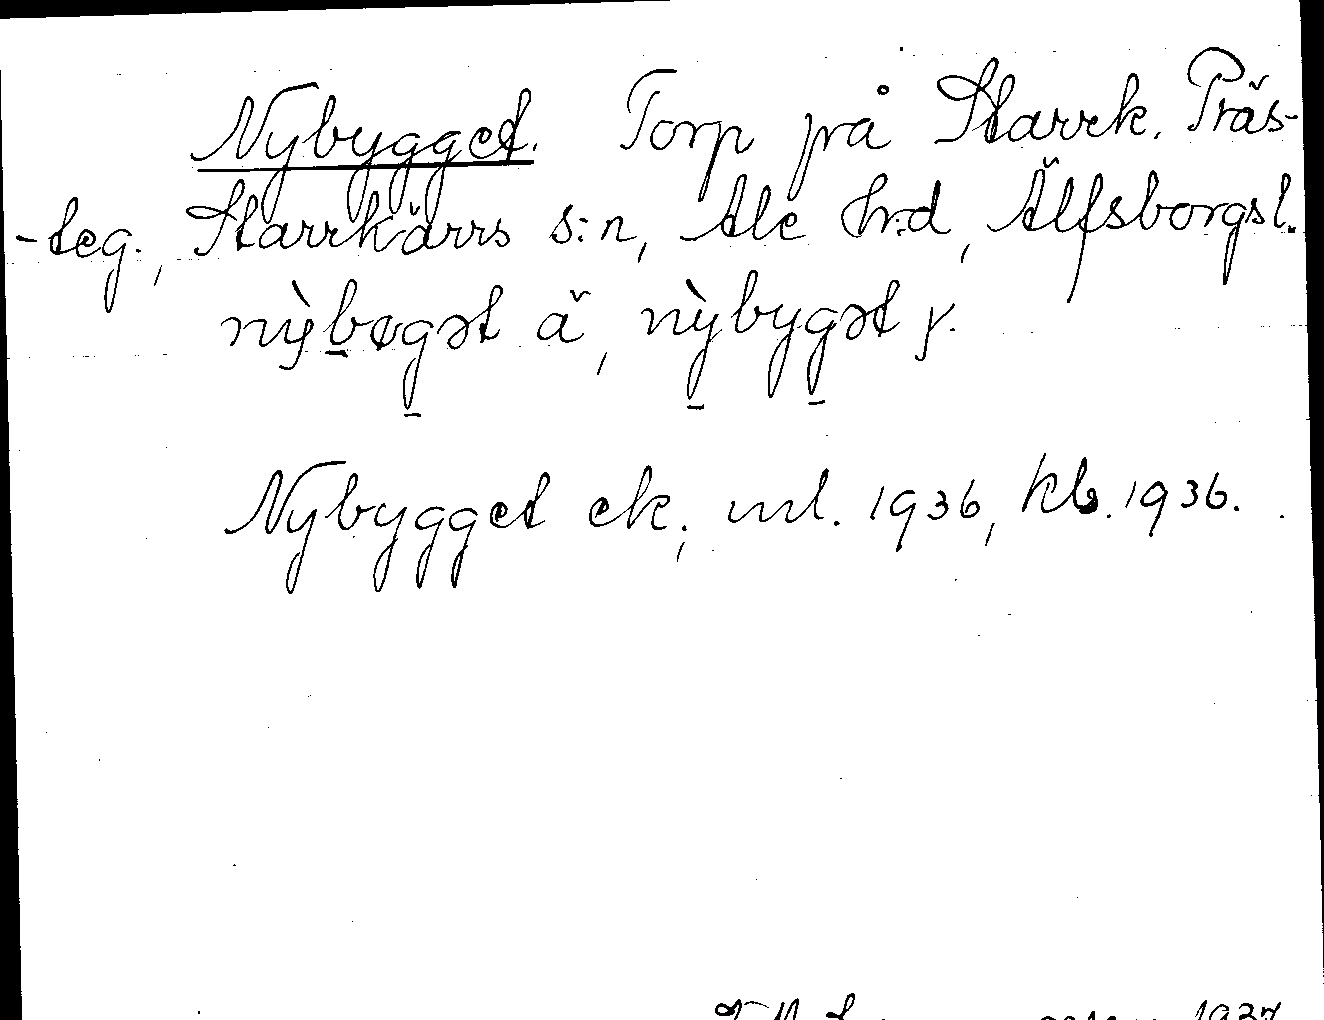 Nybygget. Torp på Starrk. Präs-
-teg., Starrkärrs s:n, Ale hr:d, Älfsborgs l.
nỳbøgət ä, nỳbygət y.
Nybygget ek., ml. 1936, kb. 1936.
1937